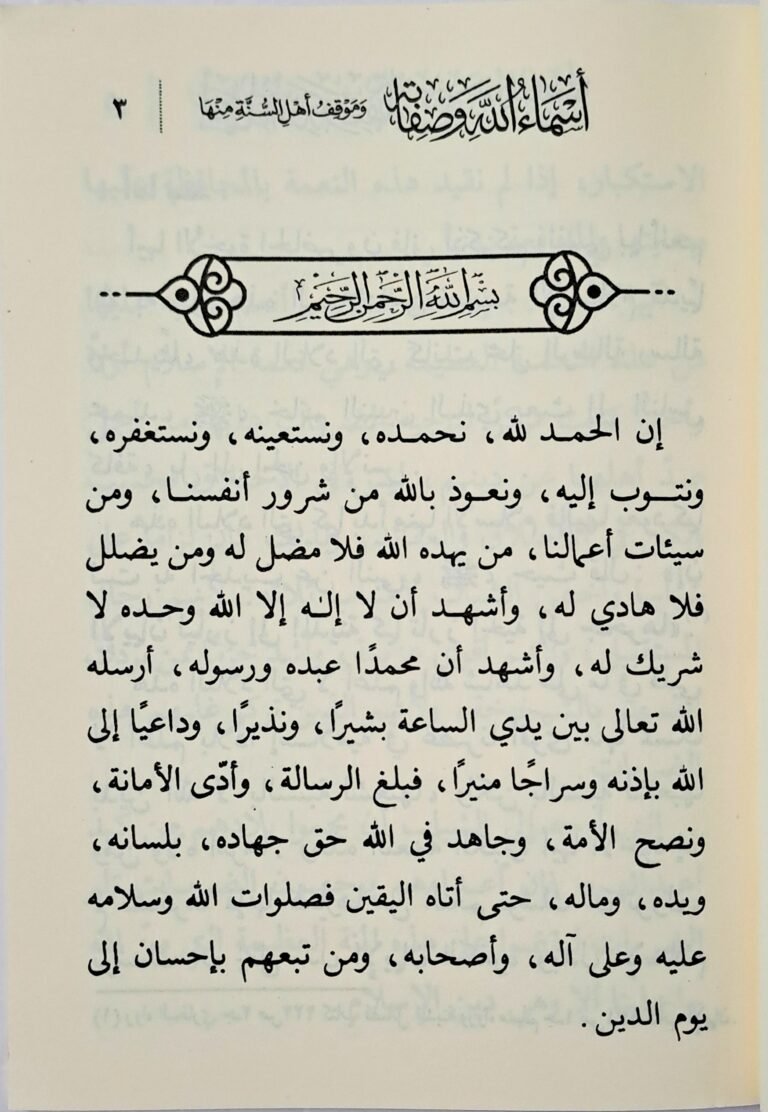 أَسْمَاءُ اللَّهِ وَصِفَاتُهُ وَمَوْقِفُ أَهْلِ السُّنَّةِ مِنْهَا ٣
بِسْمِ اللَّهِ الرَّحْمَنِ الرَّحِيمِ
إن الحمد لله، نحمده، ونستعينه، ونستغفره،
ونتوب إليه، ونعوذ بالله من شرور أنفسنا، ومن
سيئات أعمالنا، من يهده الله فلا مضل له ومن يضلل
فلا هادي له، وأشهد أن لا إلٰه إلا الله وحده لا
شريك له، وأشهد أن محمدًا عبده ورسوله، أرسله
الله تعالى بين يدي الساعة بشيرًا، ونذيرًا، وداعيًا إلى
الله بإذنه وسراجًا منيرًا، فبلغ الرسالة، وأدّى الأمانة،
ونصح الأمة، وجاهد في الله حق جهاده، بلسانه،
ويده، وماله، حتى أتاه اليقين فصلوات الله وسلامه
عليه وعلى آله، وأصحابه، ومن تبعهم بإحسان إلى
يوم الدين.